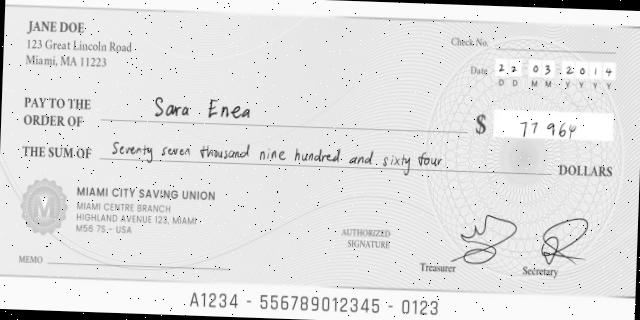 JANE DOE
123 Great Lincoln Road
Miami, MA 11223
Check No.
Date 22 03 2014
D D M M Y Y Y Y
PAY TO THE
ORDER OF Sara Enea
$ 77 964
THE SUM OF Seventy seven thousand nine hundred and sixty four DOLLARS
MIAMI CITY SAVING UNION
MIAMI CENTRE BRANCH
HIGHLAND AVENUE 123, MIAMI
M56 7S,- USA
M
AUTHORIZED
SIGNATURE
Treasurer
Secretary
MEMO
A1234 - 556789012345 - 0123